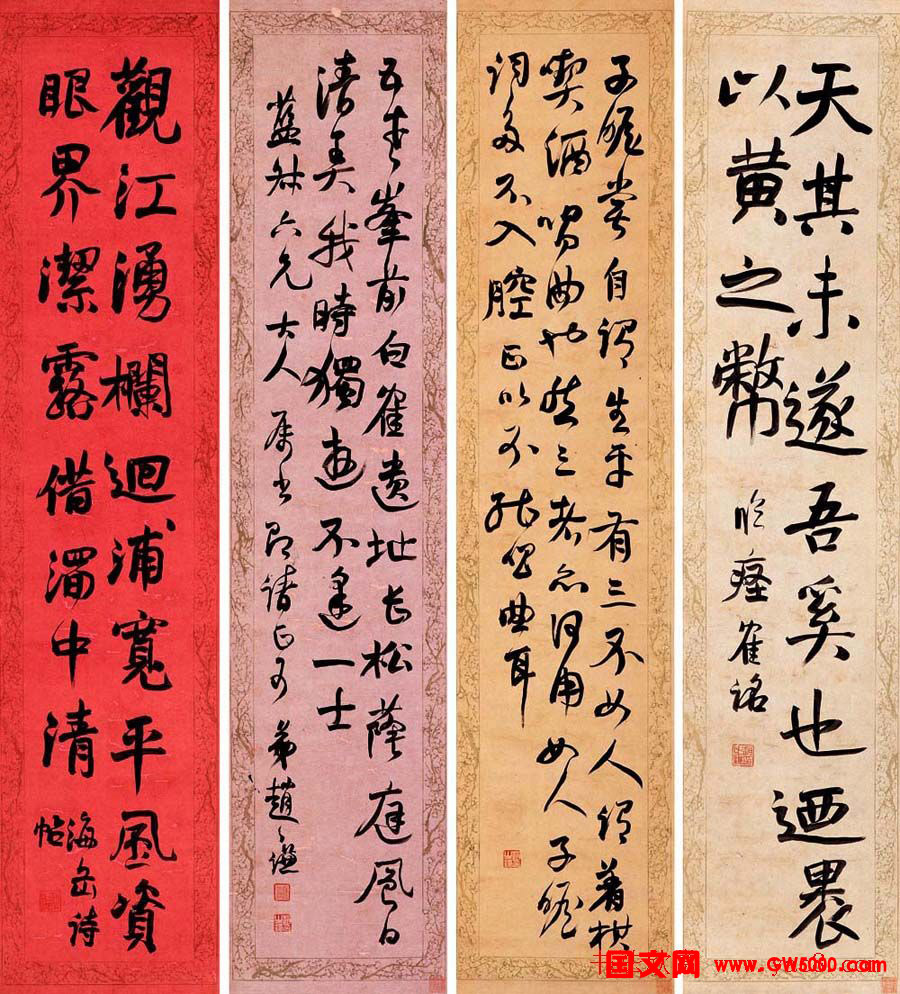 天其未遂吾奚也迺裹
以黄之幣
臨瘞寉銘
子瞻嘗自謂生平有三不如人謂著棋
喫酒唱曲也然三者亦何用如人子瞻
詞多不入腔正以不能唱曲耳
五老峯前白寉遺址長松蔭庭風日
清美我時獨遊不逢一士
藍叔六兄大人屬書即請正可弟趙之謙
觀江湧欄迴浦寬平風資
眼界潔露借濁中清
海岳詩
帖
国文网 www.GW5000.com